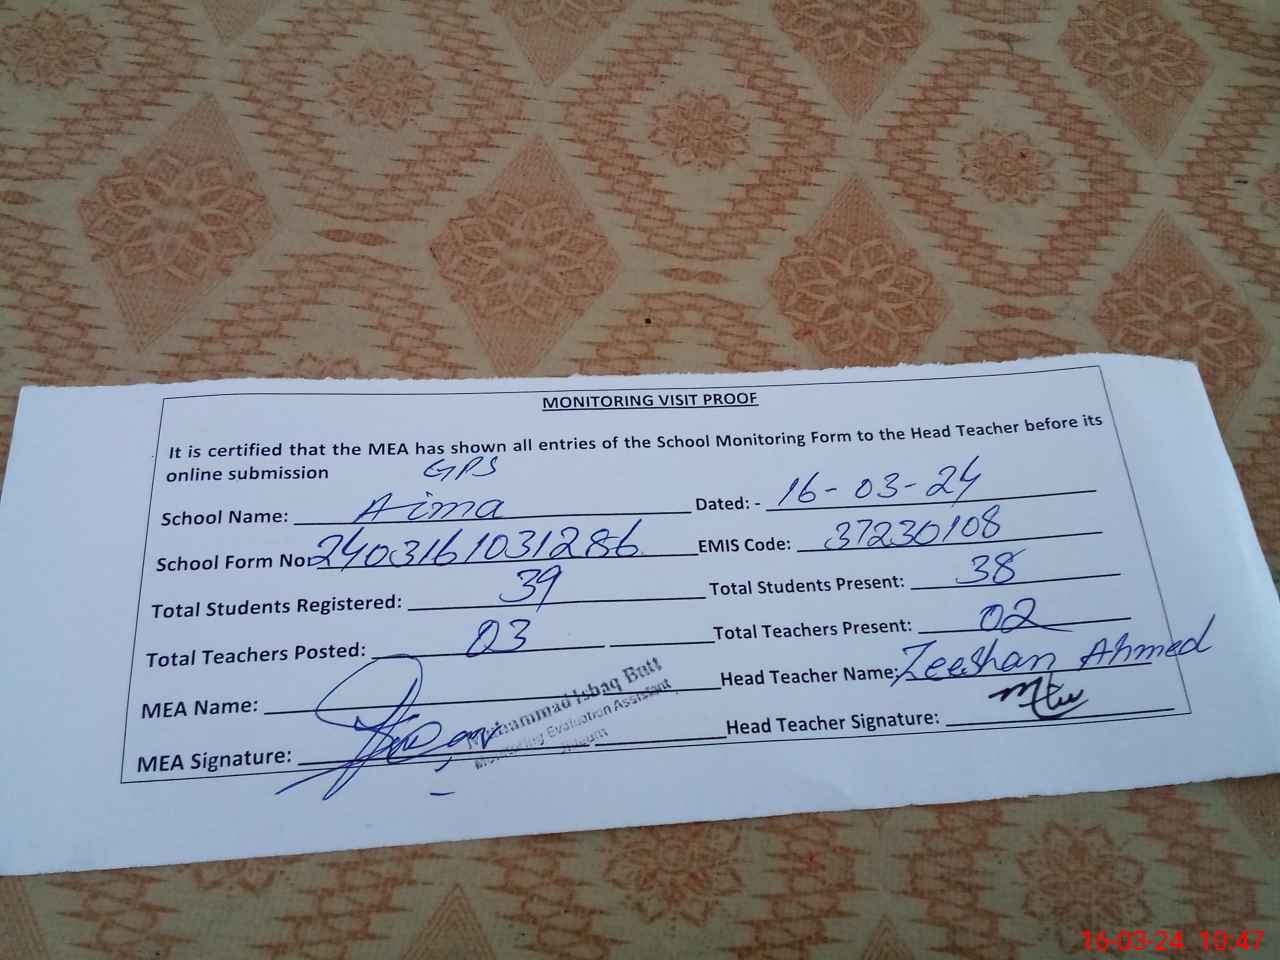 MONITORING VISIT PROOF
It is certified that the MEA has shown all entries of the School Monitoring Form to the Head Teacher before its
online submission
GPS
School Name: Aima Dated: - 16-03-24
School Form No: 2403161031286 EMIS Code: 37230108
Total Students Registered: 39 Total Students Present: 38
Total Teachers Posted: 03 Total Teachers Present: 02
MEA Name: Head Teacher Name: Zeeshan Ahmed
Muhammad Ishaq Butt
Monitoring Evaluation Assistant
MEA Signature: Head Teacher Signature:
16-03-24 10:47